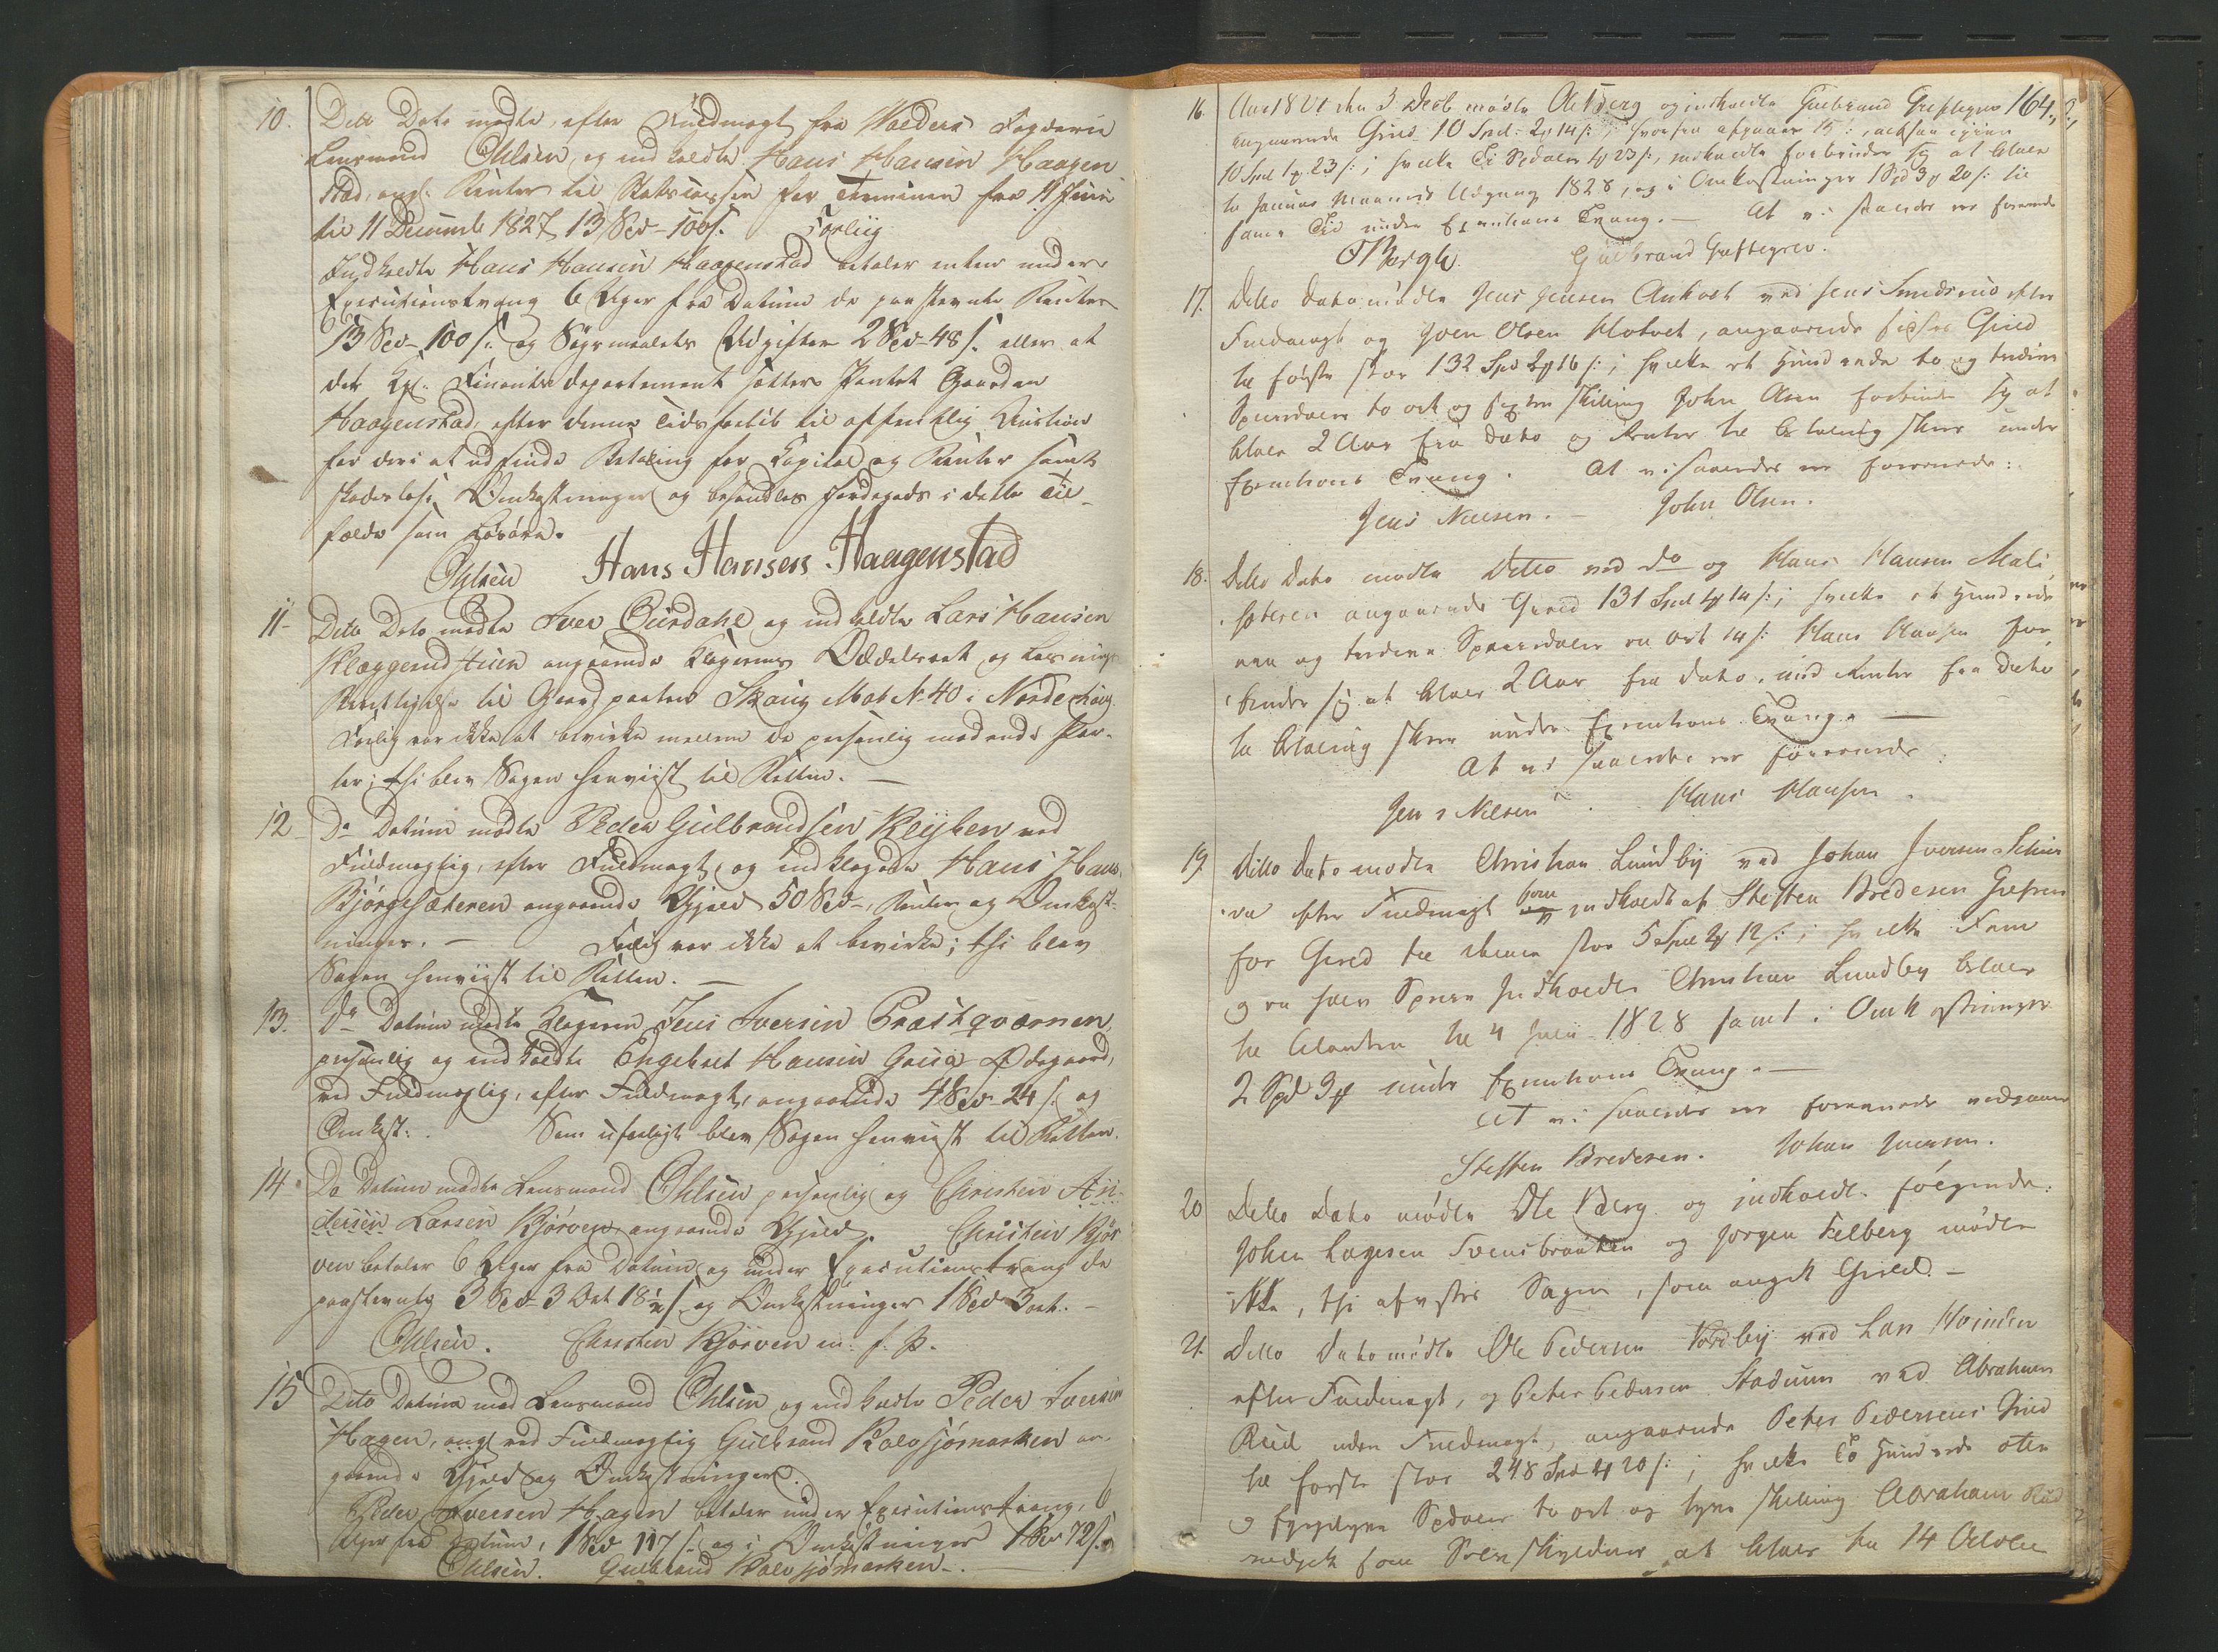 10. Dito Dato mødte, efter Fuldmagt fra Foged
Lensmand Ohlsen, og indkaldte Hans Hansen Haagen
stad, ang: Renter til Statscassen for Terminen fra 11 Juni
til 11 Decembr 1827, 13 Spd - 100 s. Forliig
Indkaldte Hans Hansen Haagenstad betaler enten under
Executionstvang 6 Uger fra Datum de paastevnte Renter
13 Spd - 100 s: og Søgsmaalets Udgifter 2 Spd - 48 s. eller at
det Kgl. Finantsdepartement sætter Pantet Gaarden
Haagenstad, efter denne Tids forløb til offentlig Auction
for deri at udfinde Betaling for Capital og Renter samt
skadesløse Omkostninger og behandles Jordegods i dette Til-
fælde som Løsøre.
Ohlsen Hans Hansen Haagenstad
11- Dito Dato mødte Iver Ourdahl og indkaldte Lars Hansen
Klæggerudstuen angaaende Klagerens Odelsret og Løsnings
Berettigelse til Gaardparten Skoug Mat N: 40 i Norderhoug
Forlig var ikke at bevirke mellem de personlig mødende Par-
ter; thi blev Sagen henviist til Retten. -
12 - Do Datum mødte Peder Gulbrandsen Klÿken ved
Fuldmægtig, efter Fuldmagt, og indklagede Hans Hans.
Bjørgesæteren angaaende Gjæld 50 Spd -, Renter og Omkost-
ninger. - Forlig var ikke at bevirke; thi blev
Sagen henviist til Retten. -
13. Do Datum mødte Klageren Jens Iversen Præstqværnen,
personlig og indkaldte Engebret Hansen Ødegaard,
ved Fuldmægtig, efter Fuldmagt, angaaende 4 Spd - 24 s. og
Omkost:. Som uforligt blev Sagen henviist til Retten.
14. Do Datum mødte Lensmand Ohlsen personlig og Christen An-
dersen Larsen Kjørven angaaende Gjæld. Christen Kjør
ven betaler 6 Uger fra Datum og under Executionstvang de
paastevnte 3 Spd - 3 Ort 18 1/2 s. og Omkostninger 1 Spd 3 ort. -
Ohlsen. Christen Kjørven m: f. P.
15 Dito Datum mød Lensmand Ohlsen og indkaldte Peder Iversen
Hagen, ang ved Fuldmægtig Gulbrand Kolosjømarken an-
gaaende Gjæld og Omkostninger.
Peder Iversen Hagen betaler under Executionstvang, 6
Uger fra Datum, 1 Spd 117 s. og i Omkostninger 1 Spd 72 s.
Ohlsen. Gulbrand Kolosjømarken -.
164.
16. Aar 1827 den 3 Decb mødte Ole Berg og indkaldte Gulbrand Greftegrev
angaaende Gield 10 Spd: 2 ort 14 s:; hvorfra afgaaer 15 s:, altsaa igien
10 Spd 1 ort 23 s:; hvilke Ti Spdaler 1 ort 23 s:, indkaldte forbinder sig at betale
to Januar Maaneds Udgang 1828, og i Omkostninger 1 Spd 3 ort 20 s: til
samme Tid under Executions Tvang. - At vi saaledes er forenede
OBergh. Gulbrand Greftegrev.
17. Ditto Dato mødte Jens Jensen Ankvet ved Jens efter
Fuldmagt og Joen Olsen Hotvet, angaaende Gield
til første stor 132 Spd 2 ort 16 s:; hvilke et Hundrede to og tredive
Speciedaler to ort og sexten Skilling John Olsen forbinder sig at
betale 2 Aar fra Dato og Renter til Betaling skeer under
Executions Tvang. At vi saaledes er forenede:
Jens Nilsen. - John Olsen.
18. Ditto Dato mødte Ditto ved do og Hans Hansen Mali
sæteren angaaende Gield 131 Spd 1 ort 14 s:; hvilke et Hundrede
een og tredive Speciedaler en ort 14 s: Hans Hansen for
binder sig at betale 2 Aar fra Dato, med Renter fra Dato
til Betaling skeer under Executions Tvang. -
At vi saaledes er forenede
Jens Nilsen. Hans Hansen.
19. Ditto Dato mødte Christian Lundbÿ ved Johan Iversen
efter Fuldmagt som indkaldt af Steffen Bredesen Grefsrud
for Gield til denne stor 5 Spd 2 ort 12 s:; hvilke Fem
og en halv Specie Indkaldte Christian Lundby betaler
til Citanten til 4 Julii 1828 samt i Omkostninger
2 Spd 3 ort under Executions Tvang. -
At vi saaledes er forenede vedgaaer
Steffen Bredesen. Johan Iversen.
20 Ditto Dato mødte Ole Berg og indkaldte følgende:
Johan Larsen Svensbraaten og Jørgen Felberg mødte
ikke, thi afvistes Sagen, som angik Gield. -
21. Ditto Dato mødte Ole Pedersen Nordbÿ ved Lars
efter Fuldmagt, og Peter Pedersen Stadum ved Abraham
Rud uden Fuldmagt, angaaende Peter Pedersens Gield
til første stor 248 Spd 2 ort 20 s:; hvilke To Hundrede otte
og fyrgetyve Spdaler to ort og tyve Skilling Abraham Rud
vedgik som Selvskyldner at betale til 14 October